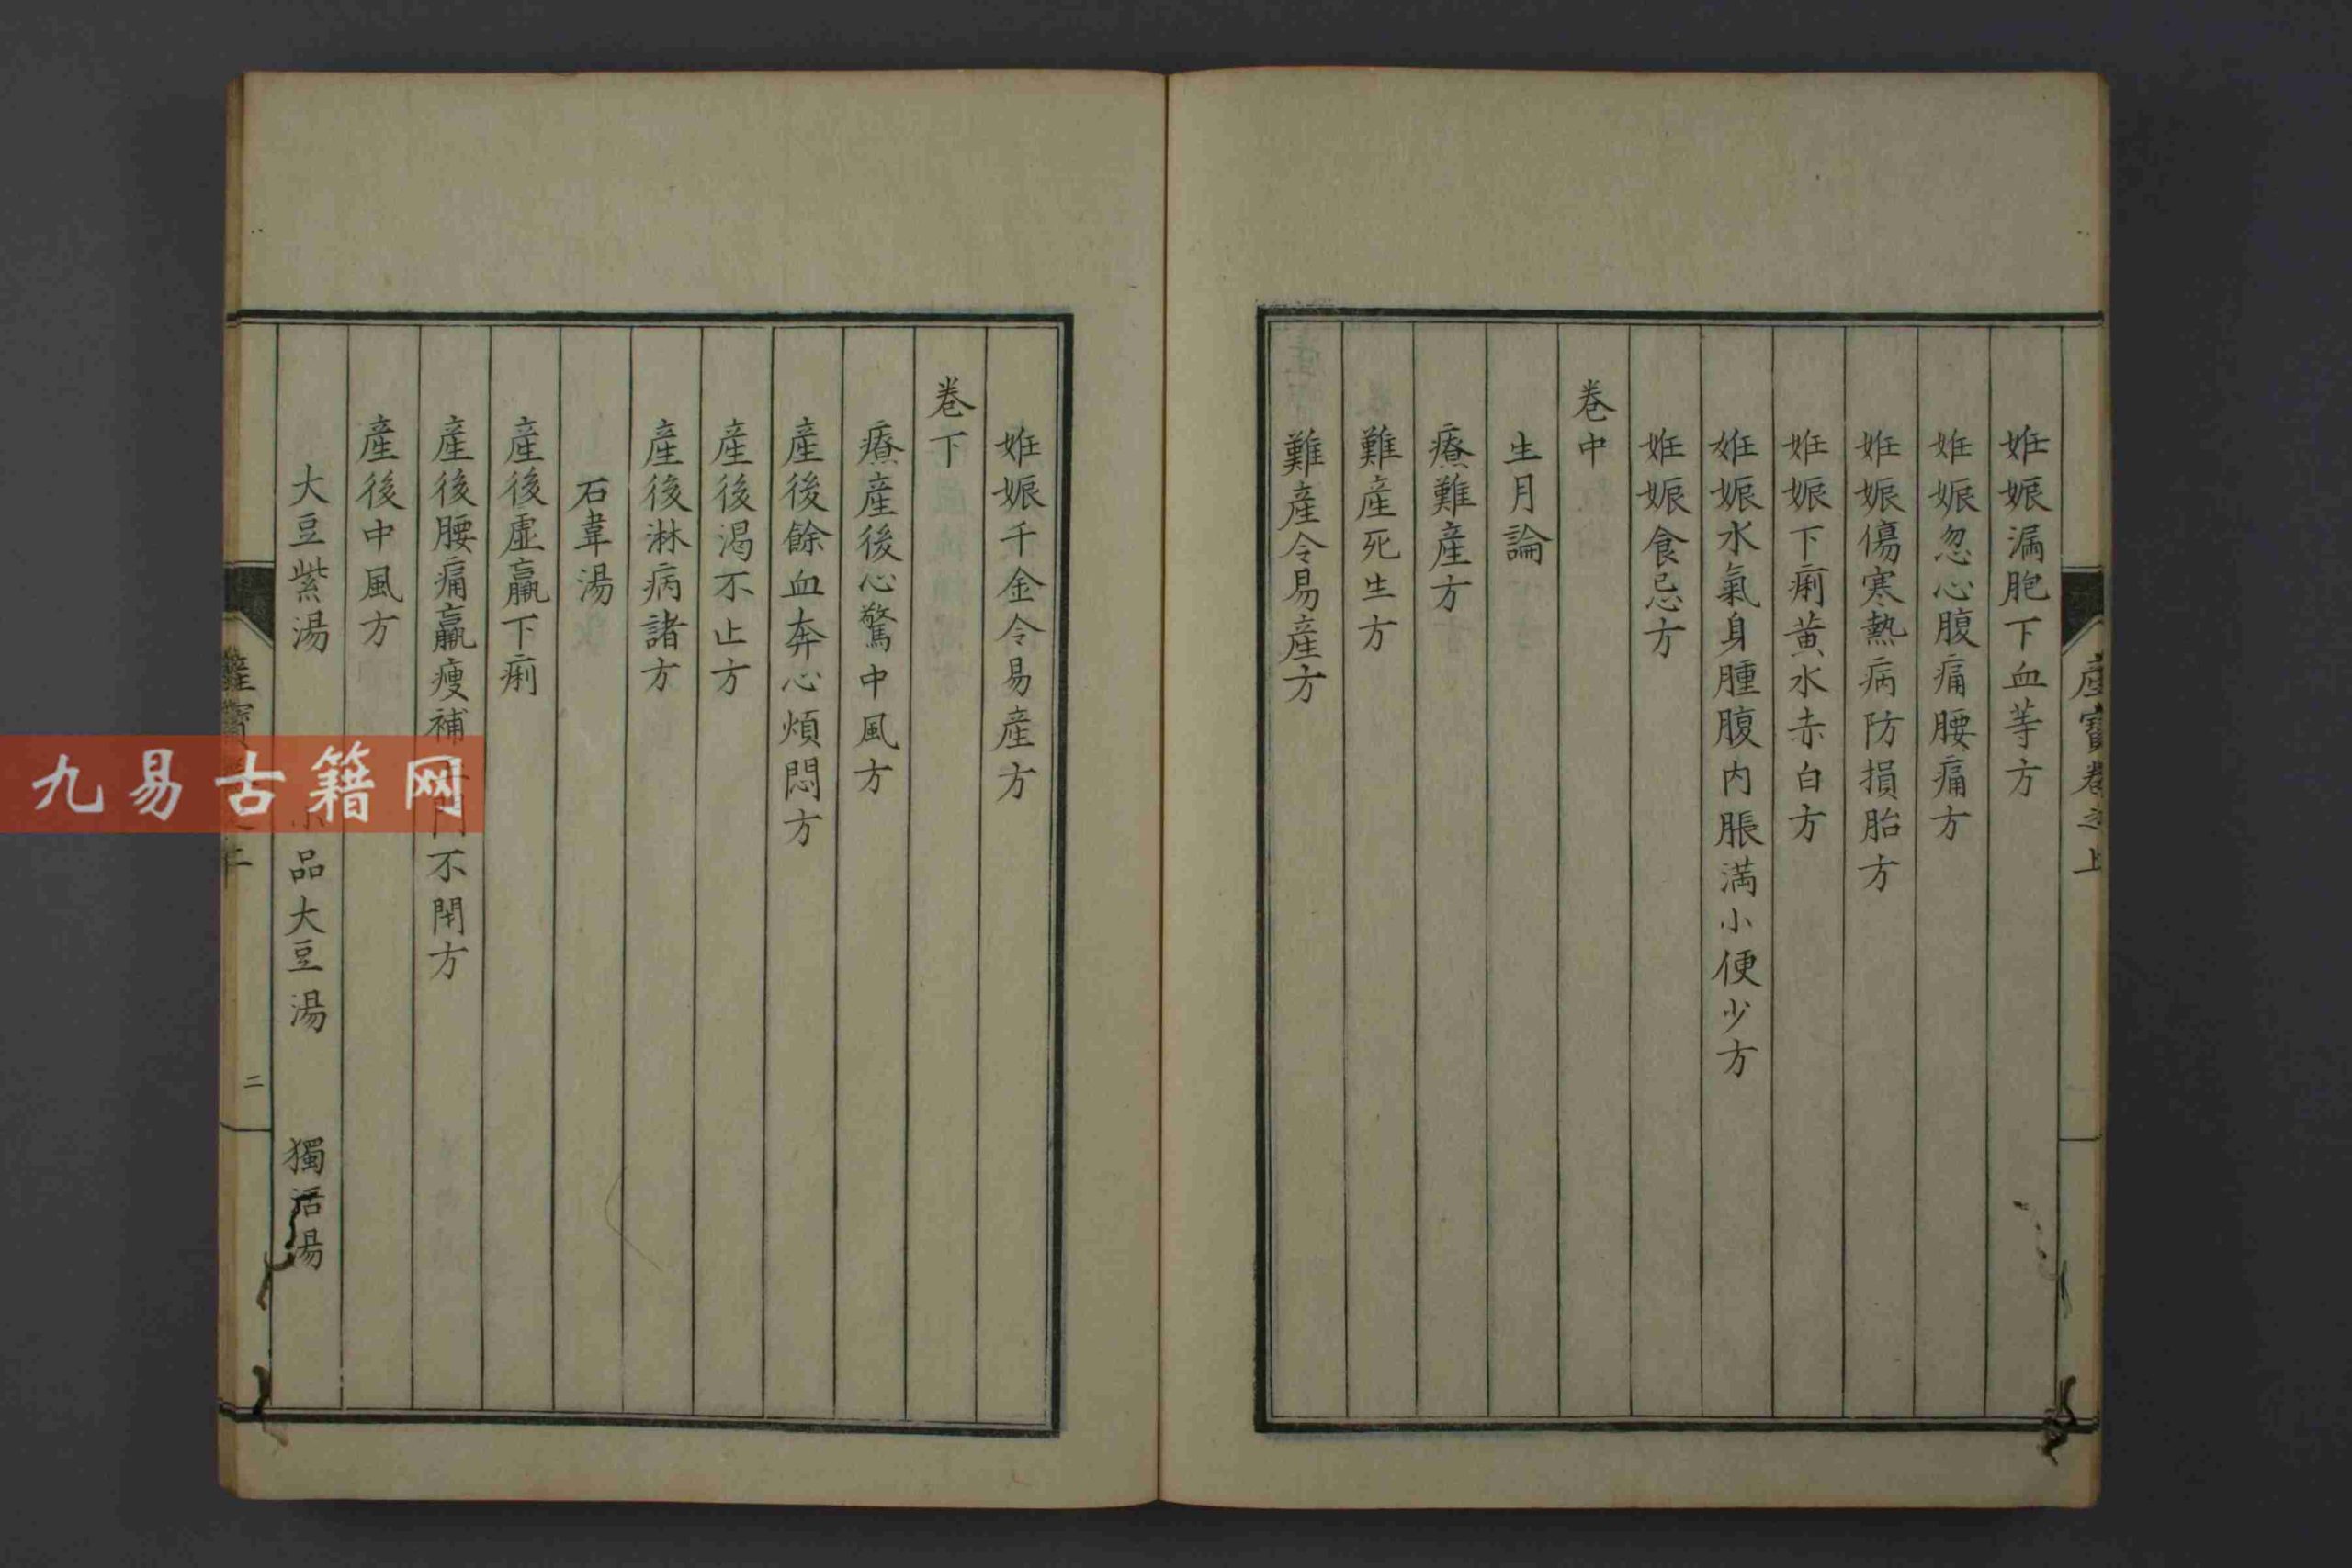 姙娠漏胞下血等方
姙娠忽心腹痛腰痛方
姙娠傷寒熱病防損胎方
姙娠下痢黄水赤白方
姙娠水氣身腫腹内脹満小便少方
姙娠食忌方
卷中
生月論
療難産方
難産死生方
難産令易産方
産寳卷之上
姙娠千金令易産方
卷下
療産後心驚中風方
産後餘血奔心煩悶方
産後渴不止方
産後淋病諸方
石韋湯
産後虚羸下痢
産後腰痛羸瘦補 不閉方
産後中風方
大豆紫湯 小品大豆湯 獨活湯
二
九易古籍网